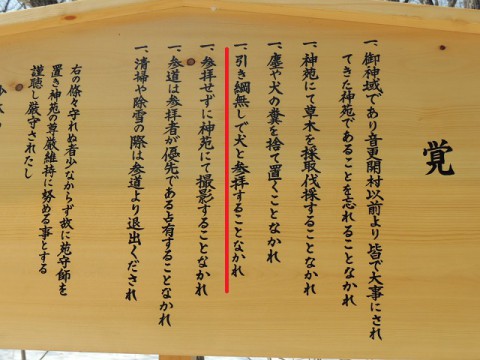 覚
一、御神域であり音更開村以前より皆で大事にされ
てきた神苑であることを忘れることなかれ
一、神苑にて草木を採取伐採することなかれ
一、塵や犬の糞を捨て置くことなかれ
一、引き綱無しで犬と参拝することなかれ
一、参拝せずに神苑にて撮影することなかれ
一、参道は参拝者が優先である占有することなかれ
一、清掃や除雪の際は参道より退出くだされ
右の條々守れぬ者少なからず故に苑守師を
置き神苑の尊厳維持に努める事とする
謹聴し厳守されたし